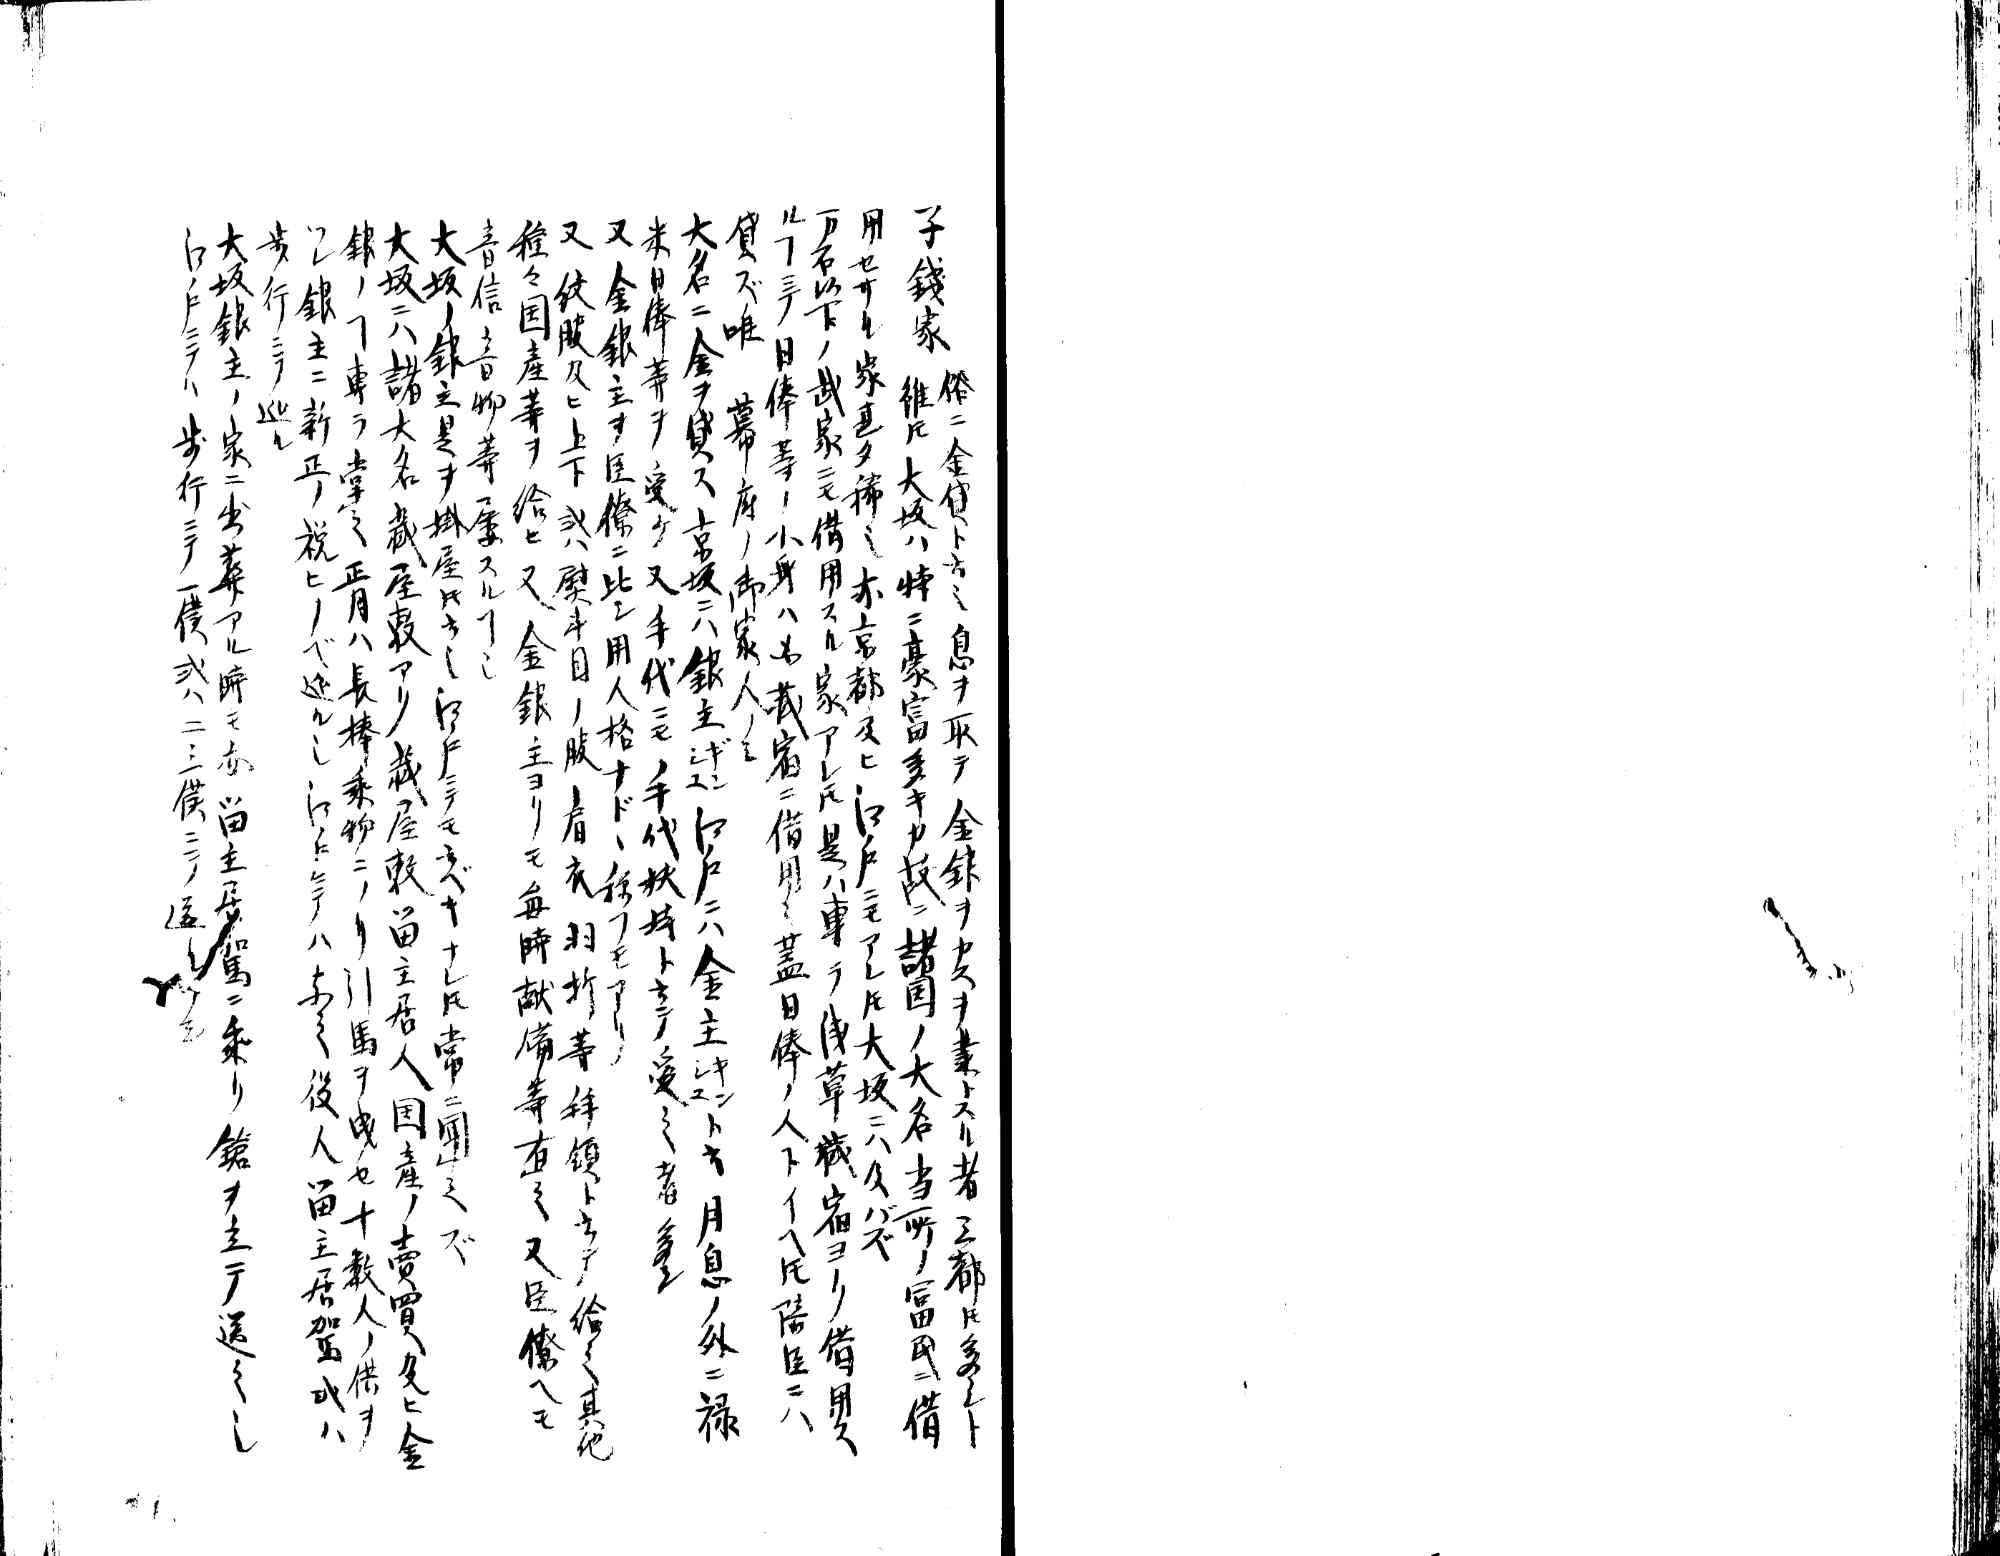 子錢家 俗ニ金貸ト云也息ヲ取テ金銀ヲカスヲ業トスル者三都トモ多シト
雖𪜈大坂ハ特ニ豪富多キカ故ニ諸国ノ大名当所ノ富民ニ借
用セザル家甚タ稀也亦京都及ヒ江戸ニモアレ𪜈大坂ニハ及バズ
一万石以下ノ武家ニモ借用スル家アレ𪜈是ハ専ラ浅草蔵宿ヨリ借用ス
ルヿニテ月俸等ノ小身ハ必蔵宿ニ借用也蓋月俸ノ人トイヘ𪜈陪臣ニハ
貸ズ唯 幕府ノ御家人ノミ
大名ニ金ヲ貸ス京坂ニハ銀主ギンシユ江戸ニハ金主キンシユト云月息ノ外ニ禄
米月俸等ヲ受ケ又手代ニモノ手代扶持ト云テ受之者多シ
又金銀主ヲ臣僚ニ比シ用人格ナドヽ称フモアリ
又紋服及ヒ上下或ハ熨斗目ノ服着衣羽折等拝領ト云テ給之其他
種々国産等ヲ給ヒ又金銀主ヨリモ毎時献備等有之又臣僚ヘモ
音信音物等屡スルヿ也
大坂ノ銀主是ヲ掛屋𪜈云也江戸ニテモ云ベキナレ𪜈常ニ聞之ズ
大坂ニハ諸大名蔵屋敷アリ蔵屋敷留主居人国産ノ賣買及ヒ金
銀ノヿ専ラ掌之正月ハ長棒乗物ニノリ引馬ヲ曳セ十数人ノ供ヲ
シ銀主ニ新正ノ祝ヒノベ巡ル也江戸ニテハ無之役人留主居駕或ハ
歩行ニテ巡ル
大坂銀主ノ家ニ出葬アル時モ亦留主居駕ニ乗リ鎗ヲ立テ送之也
江戸ニテハ歩行ニテ一僕或ハ二三僕ニテ送之